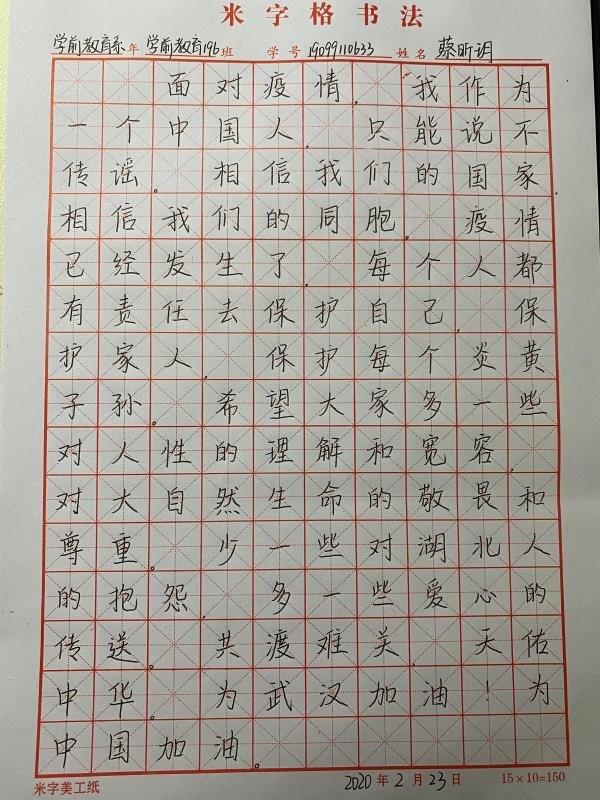 米字格书法
学前教育系年 学前教育196班 学号 19099110633 姓名 蔡昕玥
面对疫情,我作为
一个中国人,只能说不
传谣。相信我们的国家,
相信我们的同胞。疫情
已经发生了,每个人都
有责任去保护自己,保
护家人,保护每个炎黄
子孙。希望大家多一些
对人性的理解和宽容,
对大自然生命的敬畏和
尊重。少一些对湖北人
的抱怨,多一些爱心的
传送。共渡难关,天佑
中华。为武汉加油!为
中国加油。
米字美工纸 2020年2月23日 15×10=150